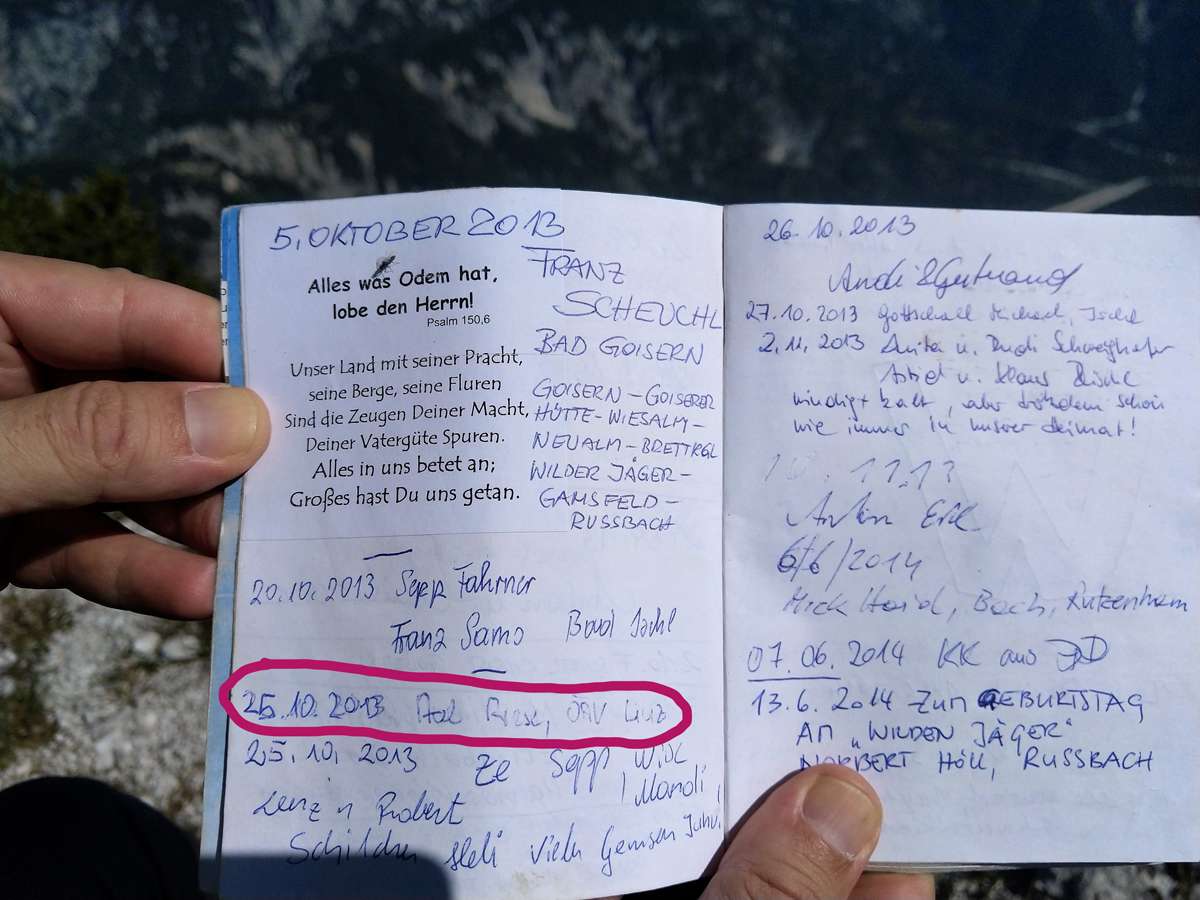 5. OKTOBER 2013
Alles was Odem hat,
lobe den Herrn!
Psalm 150,6
Unser Land mit seiner Pracht,
seine Berge, seine Fluren
Sind die Zeugen Deiner Macht,
Deiner Vatergüte Spuren.
Alles in uns betet an;
Großes hast Du uns getan.
FRANZ
SCHEUCHL
BAD GOISERN
GOISERN – GOISERER
HÜTTE – WIESALM –
NEUALM – BRETTKGL
WILDER JÄGER –
GAMSFELD –
RUSSBACH
20.10.2013 Sepp Fahrner
Franz Samo Bad Ischl
25.10.2013 ÖAV Linz
25.10.2013 Sepp
Manoli
n Robert
viele Gemsen
26.10.2013
Andi & Gertraud
27.10.2013 Gottschall Michael, Ischl
2.11.2013 Anita u. Rudi Schweighofer
Astrid u. Klaus
windig + kalt, aber trotzdem schön
wie immer in unserer Heimat!
10.11.13
6/6/2014
Mick Haid, Bach, Rutzenham
07.06.2014 KK aus
13.6.2014 ZUM GEBURTSTAG
AM „WILDEN JÄGER"
NORBERT HÖLL, RUSSBACH